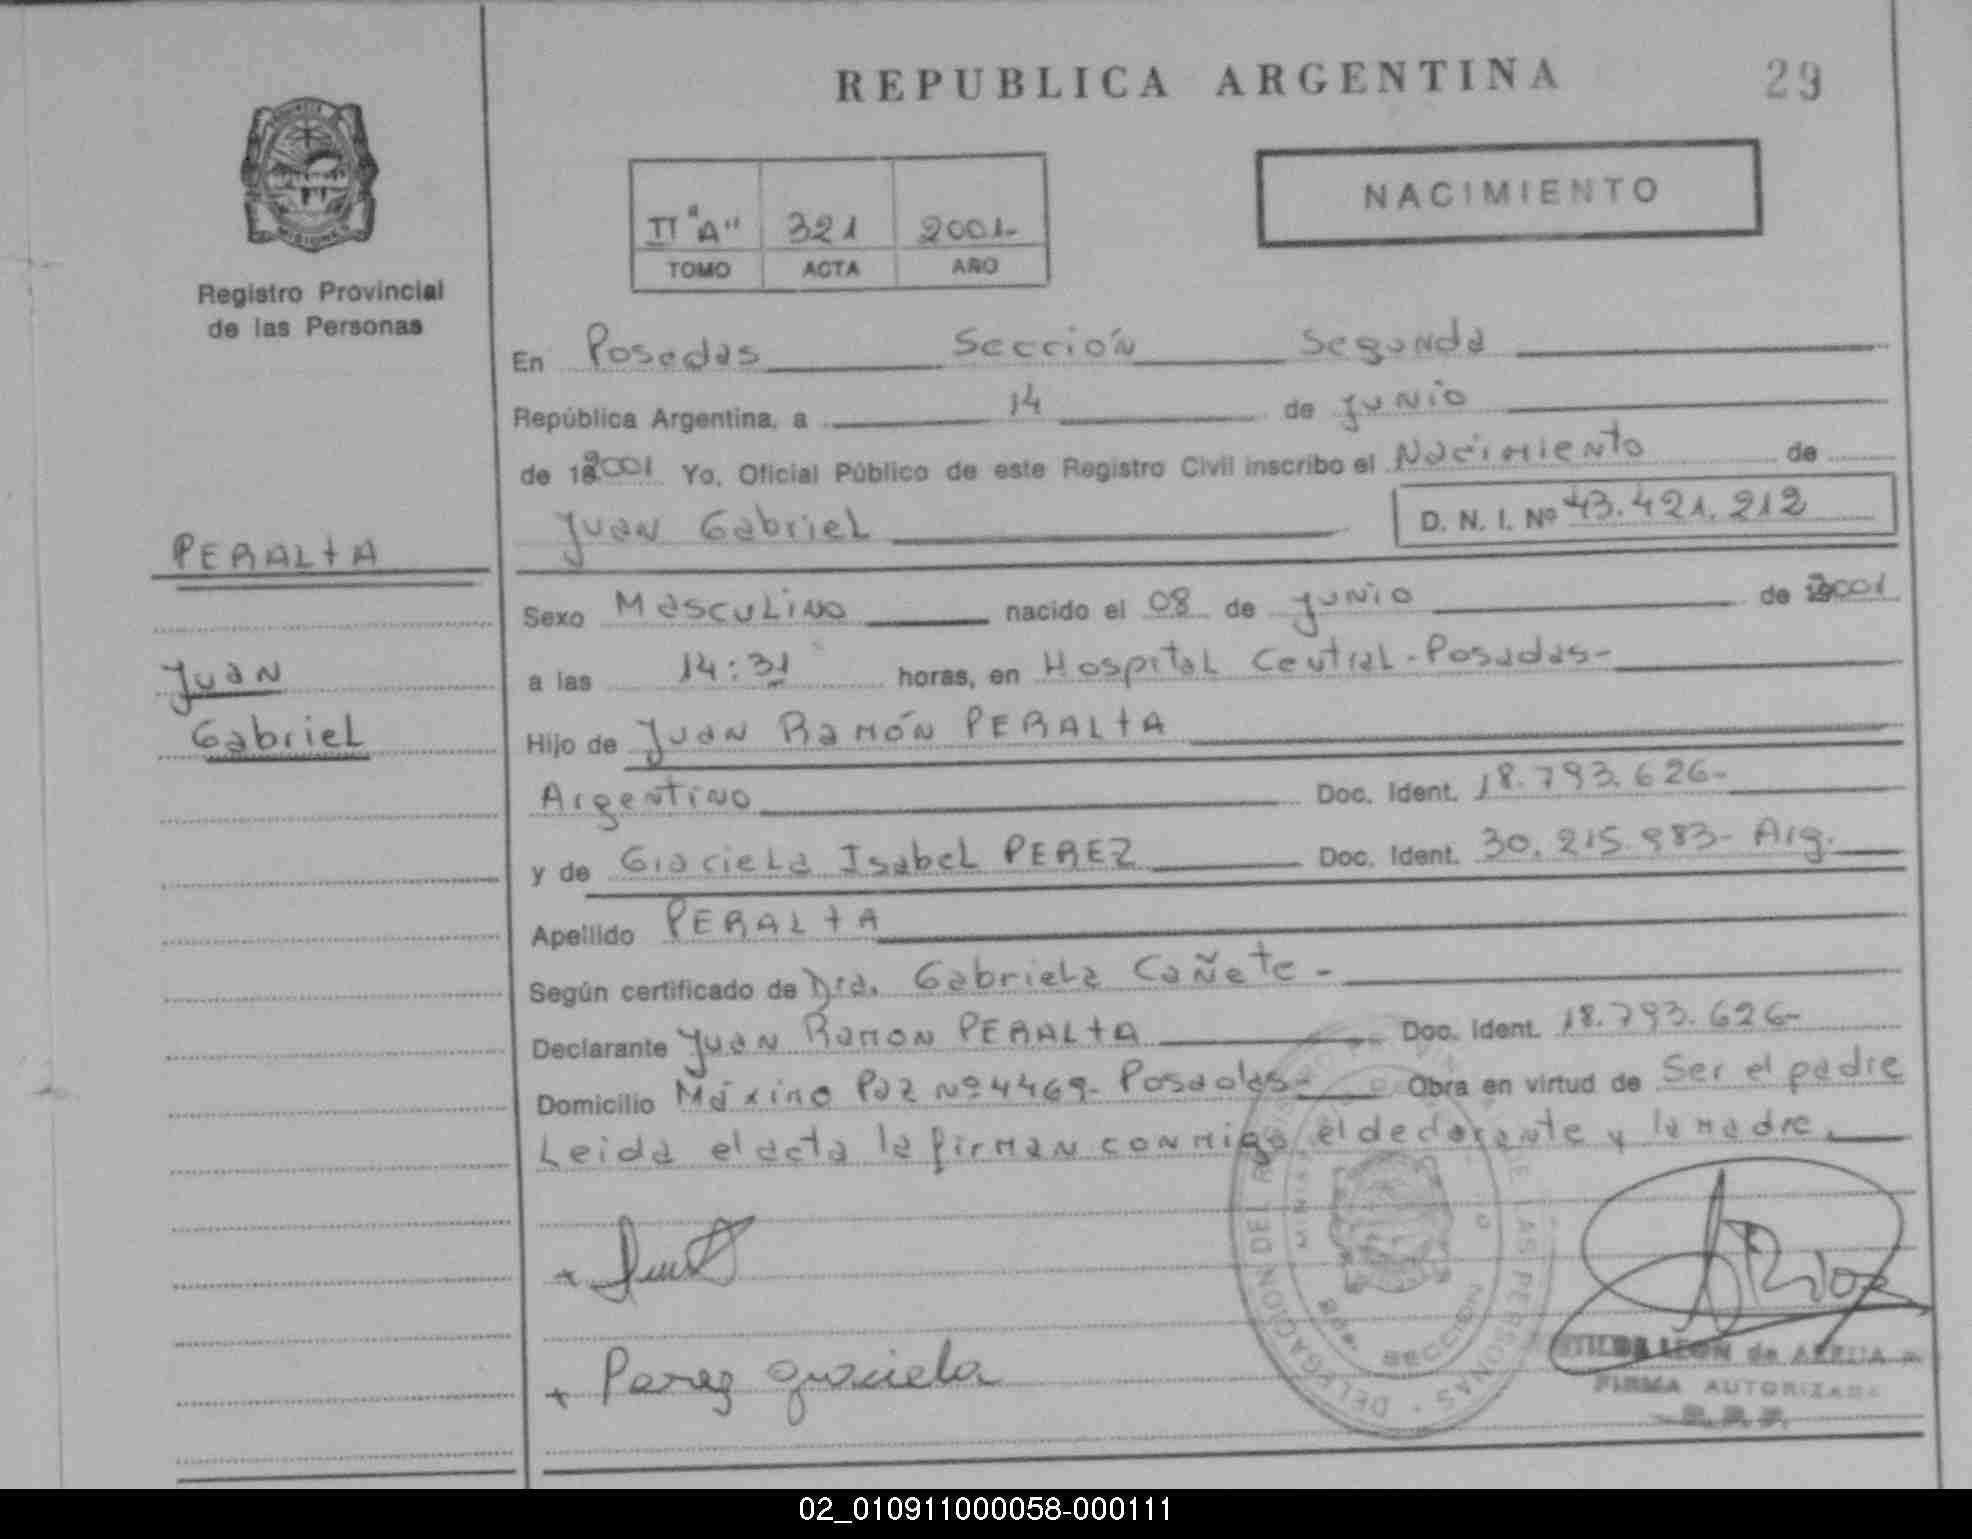 REPUBLICA ARGENTINA
29
PROVINCIA
MISIONES
Registro Provincial
de las Personas
II "A" 321 2001-
TOMO ACTA AÑO
NACIMIENTO
En Posadas Sección Segunda
República Argentina, a 14 de Junio
de 2001 Yo, Oficial Público de este Registro Civil inscribo el Nacimiento de
Juan Gabriel D. N. I. Nº 43.421.212
PERALTA
Juan
Gabriel
Sexo Masculino nacido el 08 de Junio de 2001
a las 14:31 horas, en Hospital Central-Posadas-
Hijo de Juan Ramón PERALTA
Argentino Doc. Ident. 18.793.626-
y de Graciela Isabel PEREZ Doc. Ident. 30.215.983- Arg.
Apellido PERALTA
Según certificado de Dra. Gabriela Cañete-
Declarante Juan Ramon PERALTA Doc. Ident. 18.793.626-
Domicilio Máximo Paz Nº 4469- Posadas- Obra en virtud de Ser el padre
Leida el acta la firman conmigo el declarante y la madre.
Perez graciela
DELEGACION DEL REGISTRO PROVINCIAL DE LAS PERSONAS
SECCION
LEON de
FIRMA AUTORIZADA
R. P. P.
02_010911000058-000111